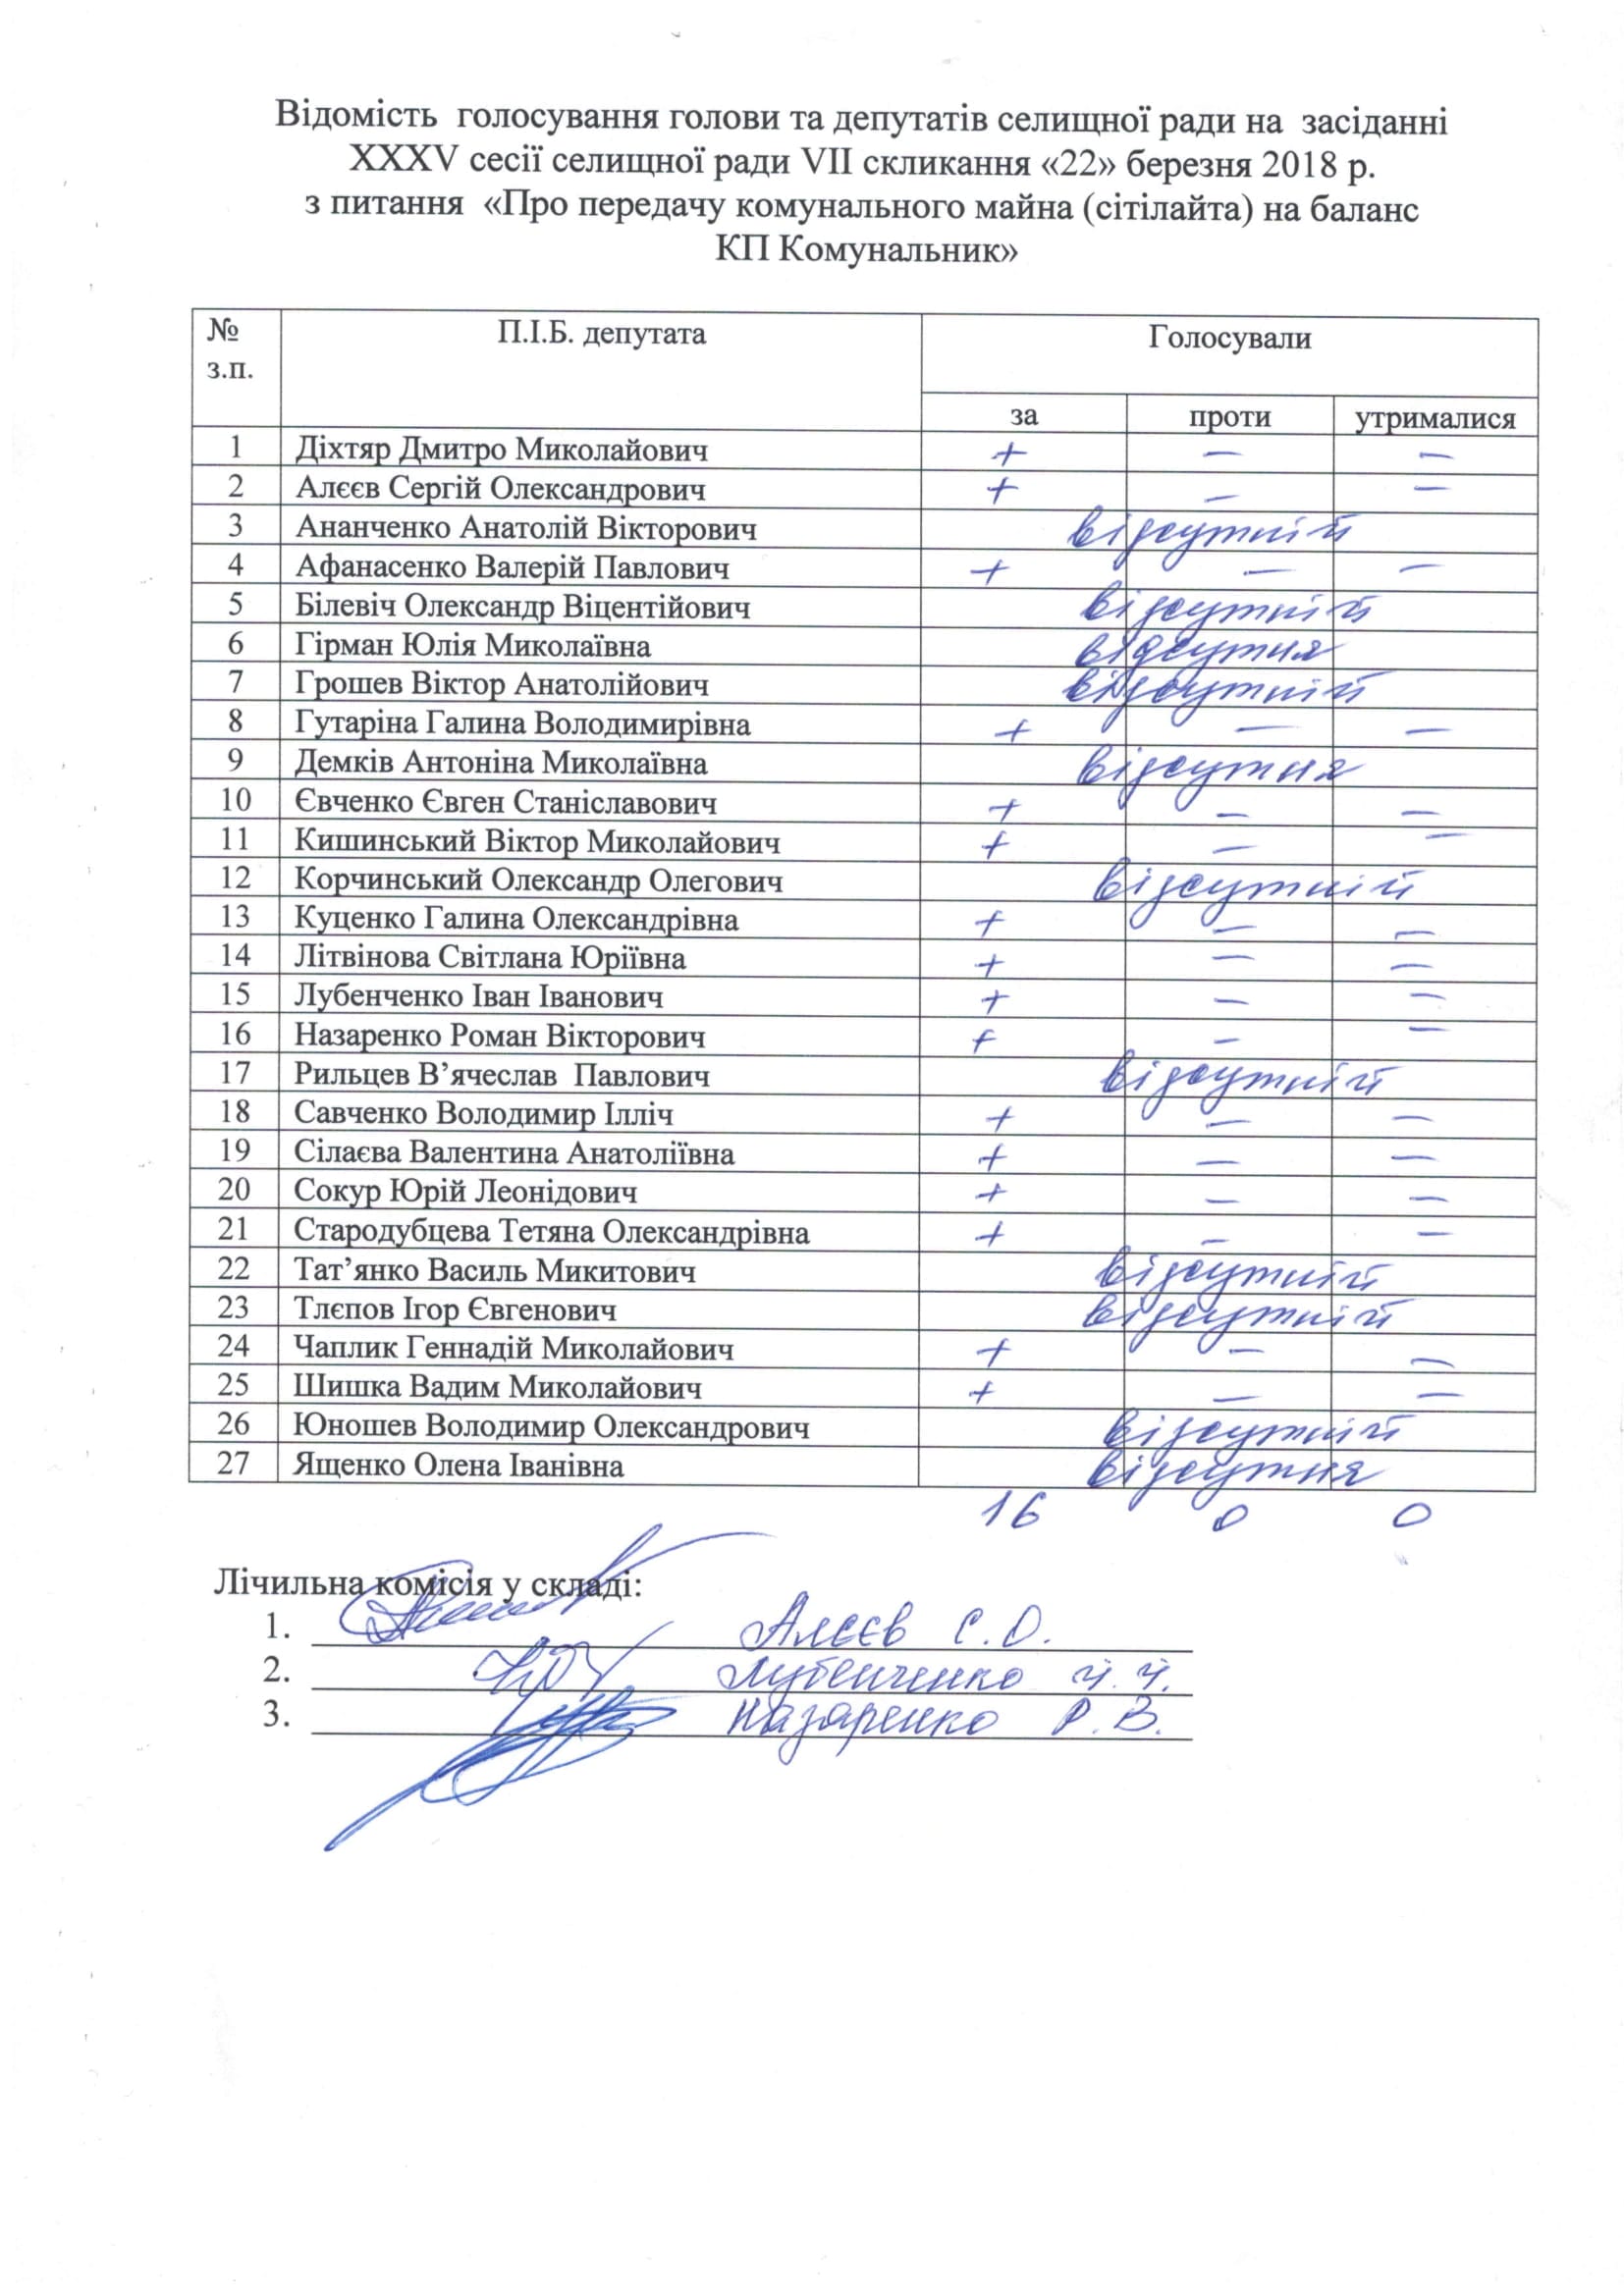 Відомість голосування голови та депутатів селищної ради на засіданні
XXXV сесії селищної ради VII скликання «22» березня 2018 р.
з питання «Про передачу комунального майна (сітілайта) на баланс
КП Комунальник»
№ з.п. П.І.Б. депутата Голосували
за проти утрималися
1 Діхтяр Дмитро Миколайович + – –
2 Алєєв Сергій Олександрович + – –
3 Ананченко Анатолій Вікторович відсутній
4 Афанасенко Валерій Павлович + – –
5 Білевіч Олександр Віцентійович відсутній
6 Гірман Юлія Миколаївна відсутня
7 Грошев Віктор Анатолійович відсутній
8 Гутаріна Галина Володимирівна + – –
9 Демків Антоніна Миколаївна відсутня
10 Євченко Євген Станіславович + – –
11 Кишинський Віктор Миколайович + – –
12 Корчинський Олександр Олегович відсутній
13 Куценко Галина Олександрівна + – –
14 Літвінова Світлана Юріївна + – –
15 Лубенченко Іван Іванович + – –
16 Назаренко Роман Вікторович + – –
17 Рильцев В’ячеслав Павлович відсутній
18 Савченко Володимир Ілліч + – –
19 Сілаєва Валентина Анатоліївна + – –
20 Сокур Юрій Леонідович + – –
21 Стародубцева Тетяна Олександрівна + – –
22 Тат’янко Василь Микитович відсутній
23 Тлєпов Ігор Євгенович відсутній
24 Чаплик Геннадій Миколайович + – –
25 Шишка Вадим Миколайович + – –
26 Юношев Володимир Олександрович відсутній
27 Ященко Олена Іванівна відсутня
16 0 0
Лічильна комісія у складі:
1. Алєєв С.О.
2. Лубенченко И.И.
3. Назаренко Р.В.